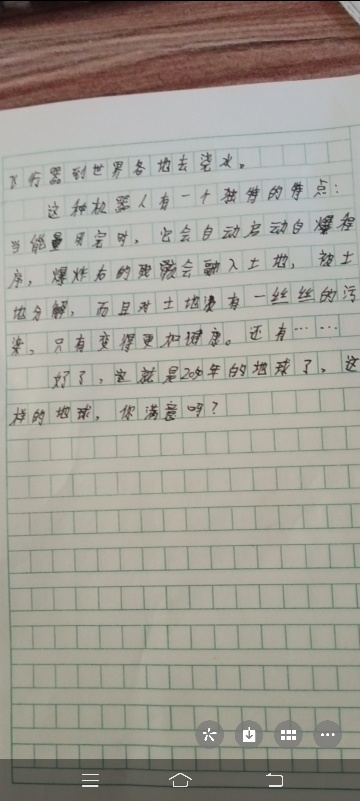 飞行器到世界各地去浇水。
这种机器人有一个独特的特点：
当能量用完时，它会自动启动自爆程
序，爆炸后的残骸会融入土地，被土
地分解，而且对土地没有一丝丝的污
染，只有变得更加健康。还有……
好了，这就是2050年的地球了，这
样的地球，你满意吗？